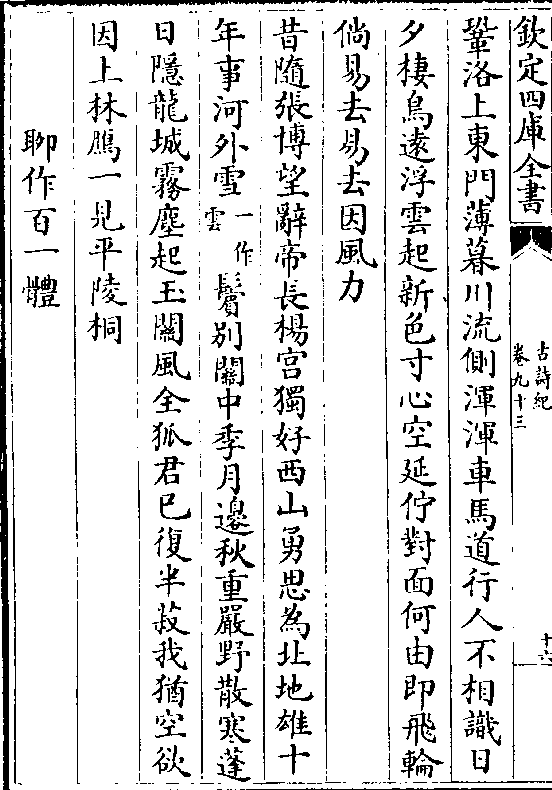 欽定四庫全書
古詩紀
卷九十三
十六
鞏洛上東門薄暮川流側渾渾車馬道行人不相識日
夕棲鳥遠浮雲起新色寸心空延佇對面何由即飛輪
倘易去易去因風力
昔隨張博望辭帝長楊宮獨好西山勇思為北地雄十
年事河外雪一作雲鬢別關中季月邊秋重嚴野散寒蓬
日隱龍城霧塵起玉關風全狐君已復半菽我猶空欲
因上林鴈一見平陵桐
聊作百一體